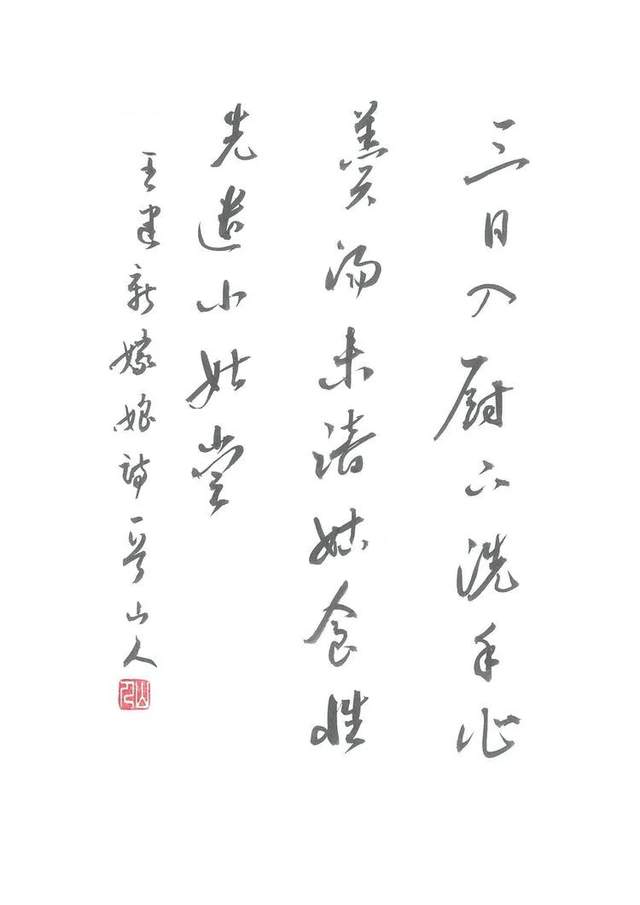 三日入厨下洗手作
羹湯未諳姑食性
先遣小姑嘗
王建新嫁娘詩 山人
山人